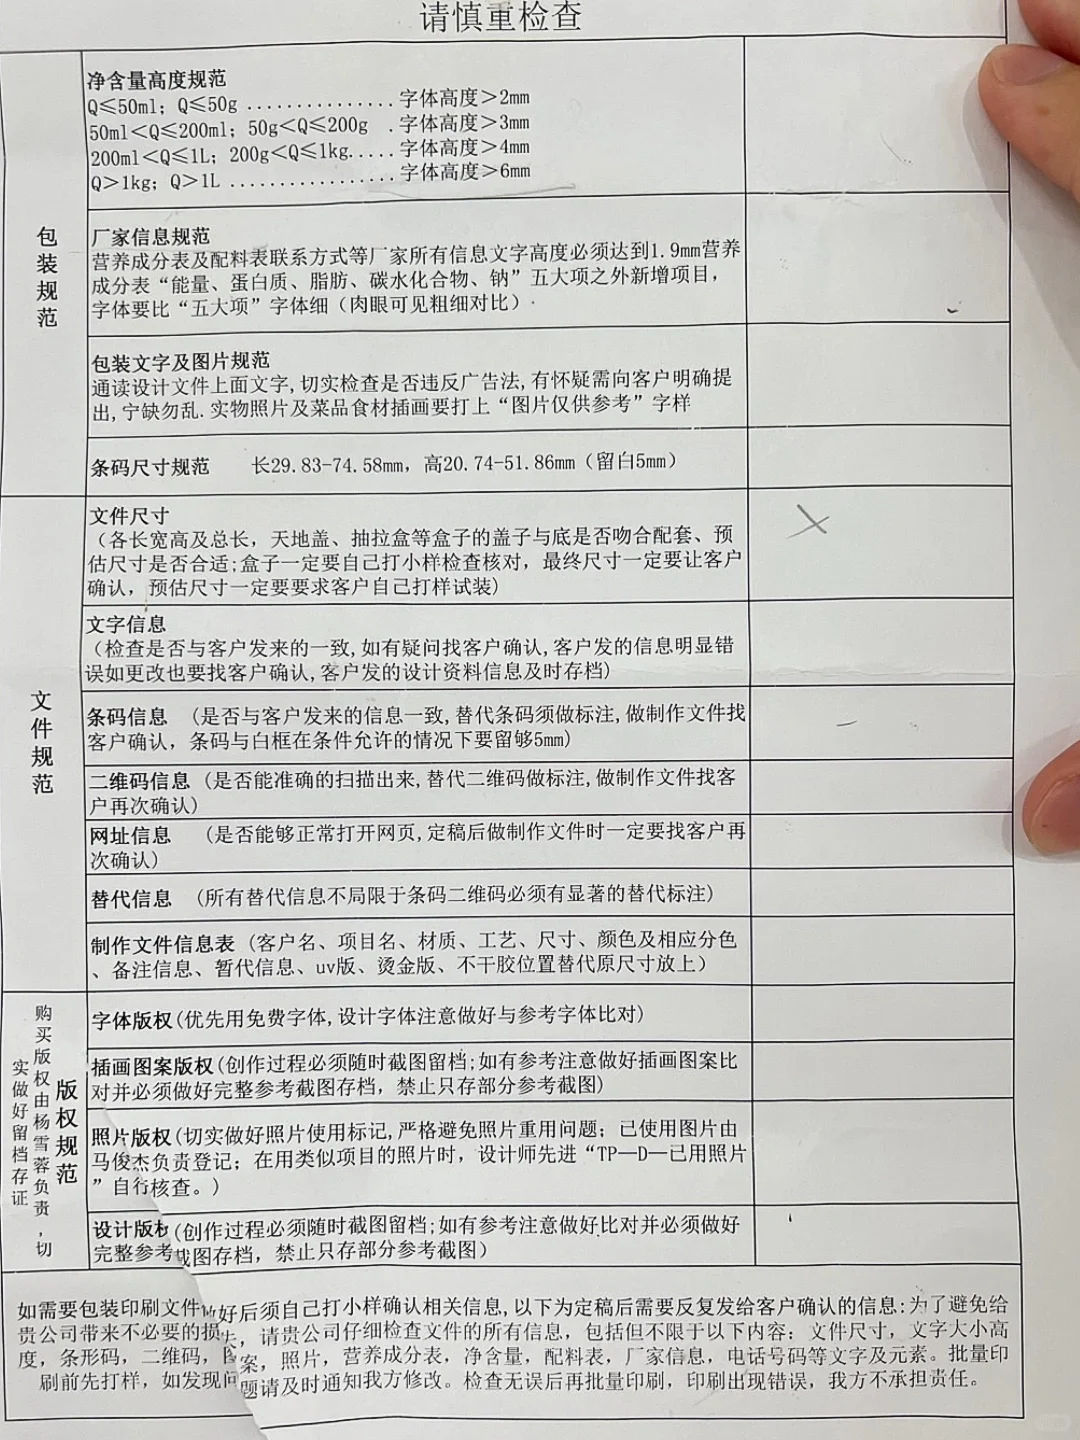 请慎重检查
净含量高度规范
Q≤50ml；Q≤50g ...............字体高度>2mm
50ml<Q≤200ml；50g<Q≤200g .字体高度>3mm
200ml<Q≤1L；200g<Q≤1kg.....字体高度>4mm
Q>1kg；Q>1L .................字体高度>6mm
包装规范
厂家信息规范
营养成分表及配料表联系方式等厂家所有信息文字高度必须达到1.9mm营养
成分表“能量、蛋白质、脂肪、碳水化合物、钠”五大项之外新增项目，
字体要比“五大项”字体细（肉眼可见粗细对比）
包装文字及图片规范
通读设计文件上面文字,切实检查是否违反广告法,有怀疑需向客户明确提
出,宁缺勿乱.实物照片及菜品食材插画要打上“图片仅供参考”字样
条码尺寸规范 长29.83-74.58mm，高20.74-51.86mm（留白5mm）
文件尺寸
（各长宽高及总长，天地盖、抽拉盒等盒子的盖子与底是否吻合配套、预
估尺寸是否合适;盒子一定要自己打小样检查核对，最终尺寸一定要让客户
确认，预估尺寸一定要要求客户自己打样试装)
文字信息
（检查是否与客户发来的一致,如有疑问找客户确认,客户发的信息明显错
误如更改也要找客户确认,客户发的设计资料信息及时存档)
文件规范
条码信息 （是否与客户发来的信息一致,替代条码须做标注,做制作文件找
客户确认，条码与白框在条件允许的情况下要留够5mm)
二维码信息（是否能准确的扫描出来,替代二维码做标注,做制作文件找客
户再次确认)
网址信息 （是否能够正常打开网页,定稿后做制作文件时一定要找客户再
次确认)
替代信息 （所有替代信息不局限于条码二维码必须有显著的替代标注)
制作文件信息表（客户名、项目名、材质、工艺、尺寸、颜色及相应分色
、备注信息、暂代信息、uv版、烫金版、不干胶位置替代原尺寸放上）
版权规范
购买版权由杨雪蓉负责,切
实做好留档存证
字体版权(优先用免费字体,设计字体注意做好与参考字体比对)
插画图案版权(创作过程必须随时截图留档;如有参考注意做好插画图案比
对并必须做好完整参考截图存档，禁止只存部分参考截图)
照片版权(切实做好照片使用标记,严格避免照片重用问题；已使用图片由
马俊杰负责登记；在用类似项目的照片时，设计师先进“TP—D—已用照片
”自行核查。)
设计版权(创作过程必须随时截图留档;如有参考注意做好比对并必须做好
完整参考截图存档，禁止只存部分参考截图）
如需要包装印刷文件做好后须自己打小样确认相关信息,以下为定稿后需要反复发给客户确认的信息:为了避免给
贵公司带来不必要的损失，请贵公司仔细检查文件的所有信息，包括但不限于以下内容：文件尺寸，文字大小高
度，条形码，二维码，图案，照片，营养成分表，净含量，配料表，厂家信息，电话号码等文字及元素。批量印
刷前先打样，如发现问题请及时通知我方修改。检查无误后再批量印刷，印刷出现错误，我方不承担责任。